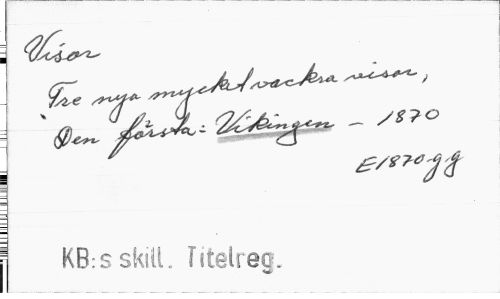 Visor
Tre nya mycket vackra visor,
Den första: Vikingen – 1870
E1870gg
KB:s skill. Titelreg.